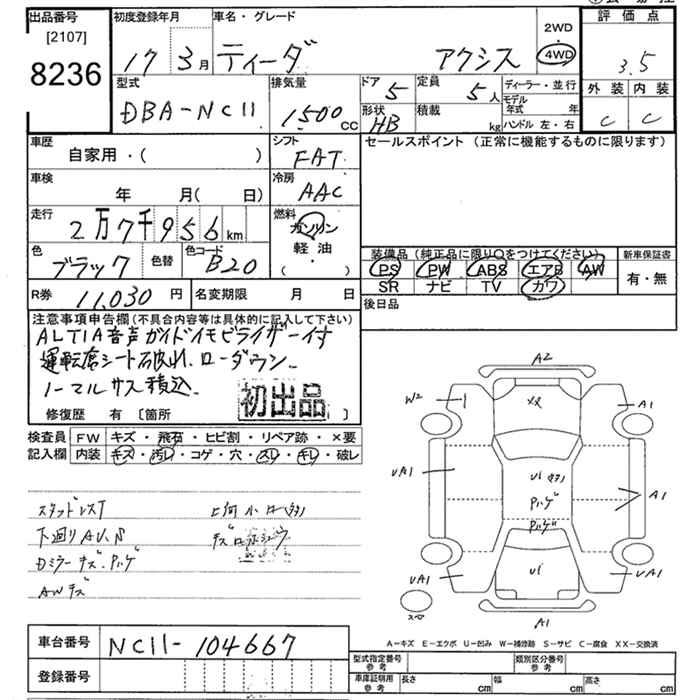 出品番号
[2107]
8236
初度登録年月
17 3月
車名・グレード
ティーダ アクシス
2WD
4WD
評価点
3.5
外装 内装
C C
型式
DBA-NC11
排気量
1500 cc
ドア 5
定員 5人
形状 HB
積載 kg
ディーラー・並行
モデル年式 年
ハンドル 左・右
車歴
自家用・( )
シフト
FAT
車検
年 月( 日)
冷房
AAC
走行
2万7千956km
燃料
ガソリン
軽油
( ・ )
色
ブラック
色替
色コード
B20
R券 11,030円
名変期限 月 日
セールスポイント (正常に機能するものに限ります)
装備品 (純正品に限り○をつけてください)
PS PW ABS エアB AW
SR ナビ TV カワ
新車保証書
有・無
後日品
注意事項申告欄 (不具合内容等は具体的に記入して下さい)
ALTIA音声ガイドイモビライザー付
運転席シート破れ. ローダウン.
ノーマルサス積込.
初出品
修復歴 有 [箇所 ]
検査員記入欄
FW キズ・飛石・ヒビ割・リペア跡・×要
内装 キズ・汚レ・コゲ・穴・スレ・キレ・破レ
スタッドレスT
下廻りAU.N
Dミラーキズ.ハゲ
AWキズ
A2
W2
XX
A1
UA1
U1
ハゲ
A1
ハゲ
UA1
U1
UA1
A1
A-キズ E-エクボ U-凹み W-補修跡 S-サビ C-腐食 XX-交換済
車台番号 NC11-104667
登録番号
型式指定番号
参考
類別区分番号
参考
車庫証明用
参考
長さ cm 幅 cm 高さ cm